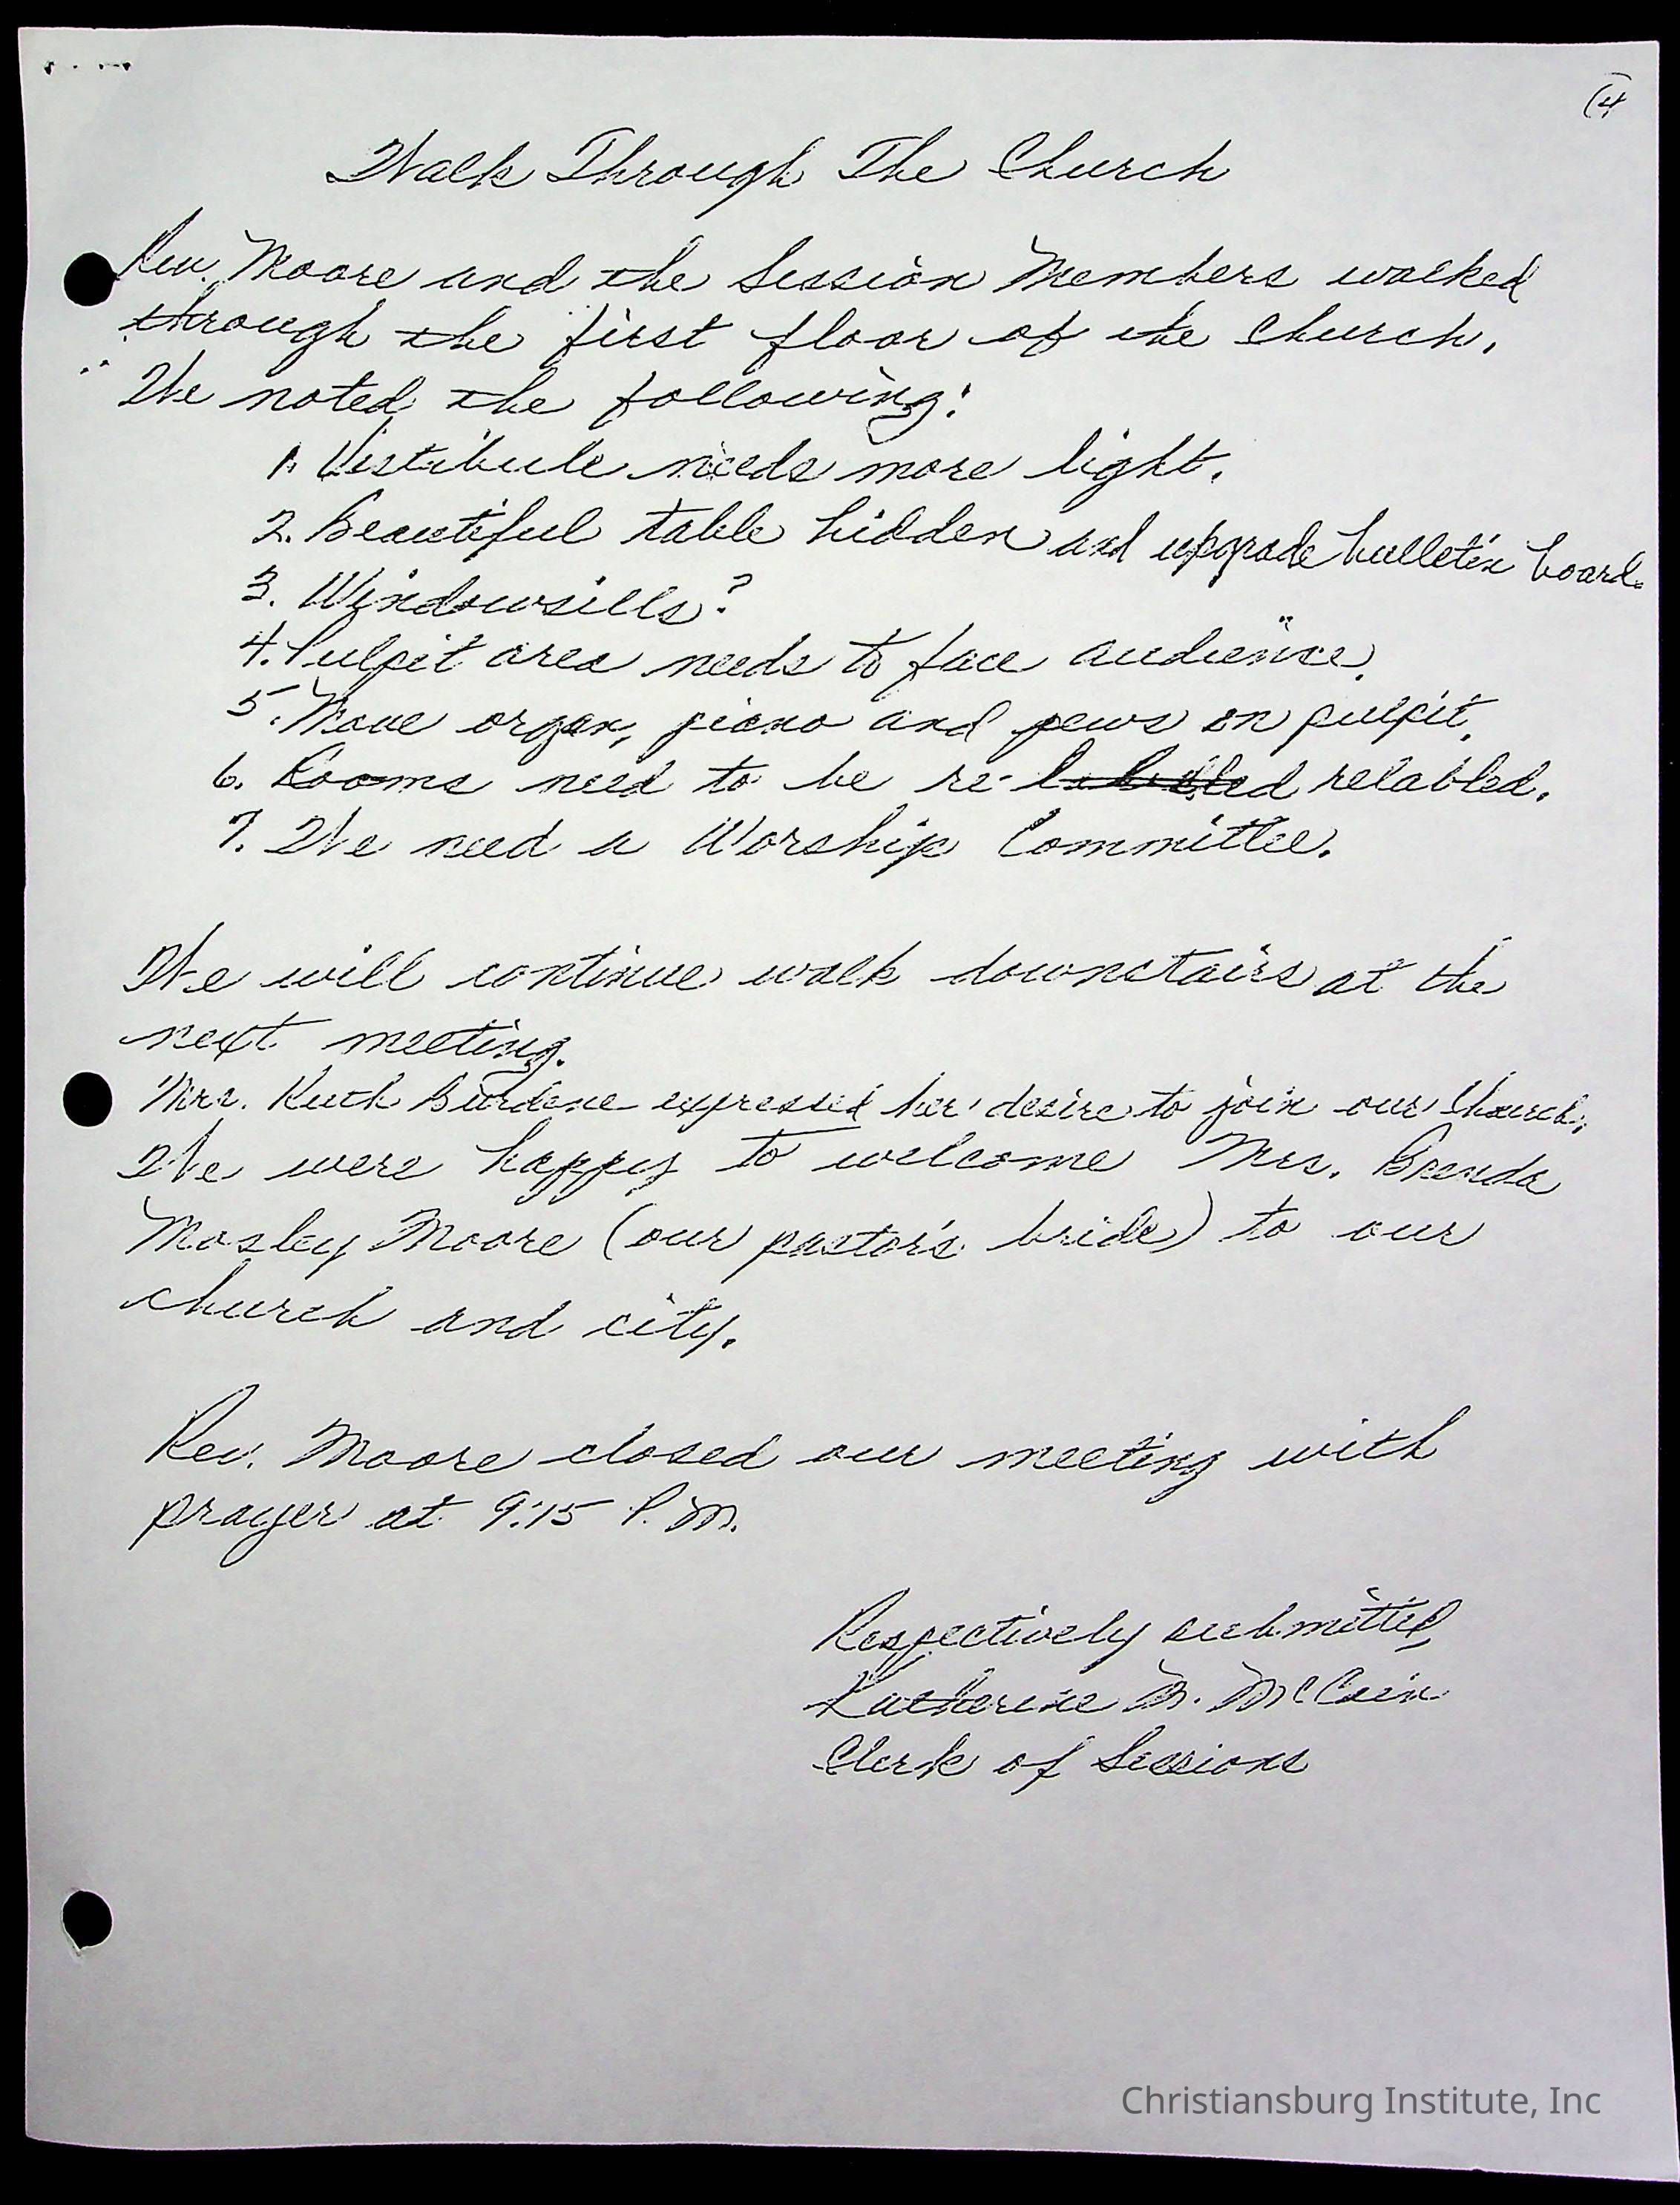 (4
Walk Through The Church
Rev. Moore and the Session Members walked
through the first floor of the Church.
We noted the following:
1. Vestibule needs more light.
2. Beautiful table hidden and upgrade bulletin board.
3. Windowsills?
4. Pulpit area needs to face audience.
5. Move organ, piano and pews on pulpit.
6. Rooms need to be re- relabled.
7. We need a Worship Committee.
We will continue walk downstairs at the
next meeting.
Mrs. Ruth Burdene expressed her desire to join our Church.
We were happy to welcome Mrs. Brenda
Mosley Moore (our pastor's bride) to our
church and city.
Rev. Moore closed our meeting with
prayer at 9:15 P.M.
Respectively submitted,
Katherine M. McCain
Clerk of Sessions
Christiansburg Institute, Inc